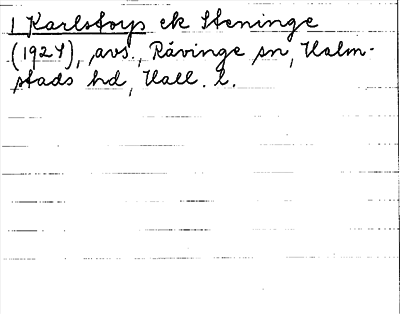 1 Karlstorp ek Steninge
(1924), avs., Rävinge sn, Halm-
stads hd, Hall. l.